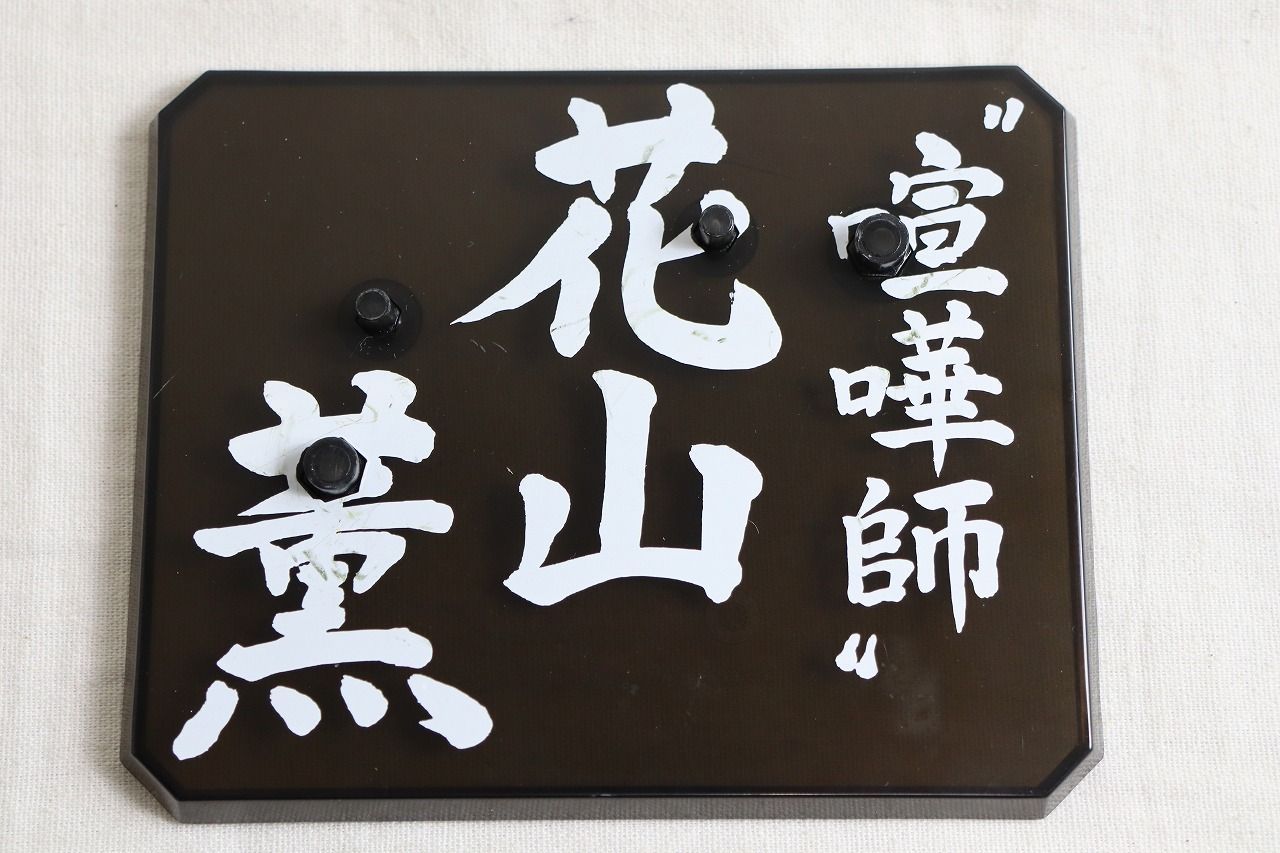 "喧嘩師"
花山
薫